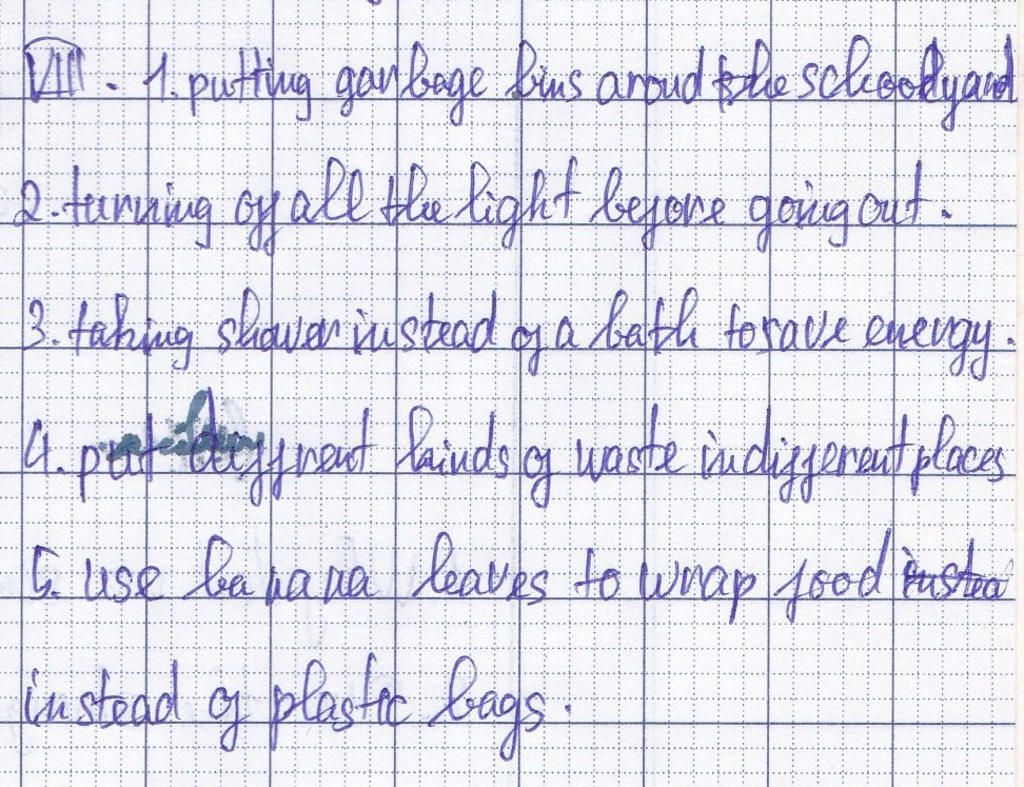 VIII. 1. putting garbage bins aroud the schoolyard
2. turning off all the light before going out.
3. taking shower instead of a bath to save energy.
4. put diffrent kinds of waste in different places
5. use banana leaves to wrap food
instead of plastic bags.